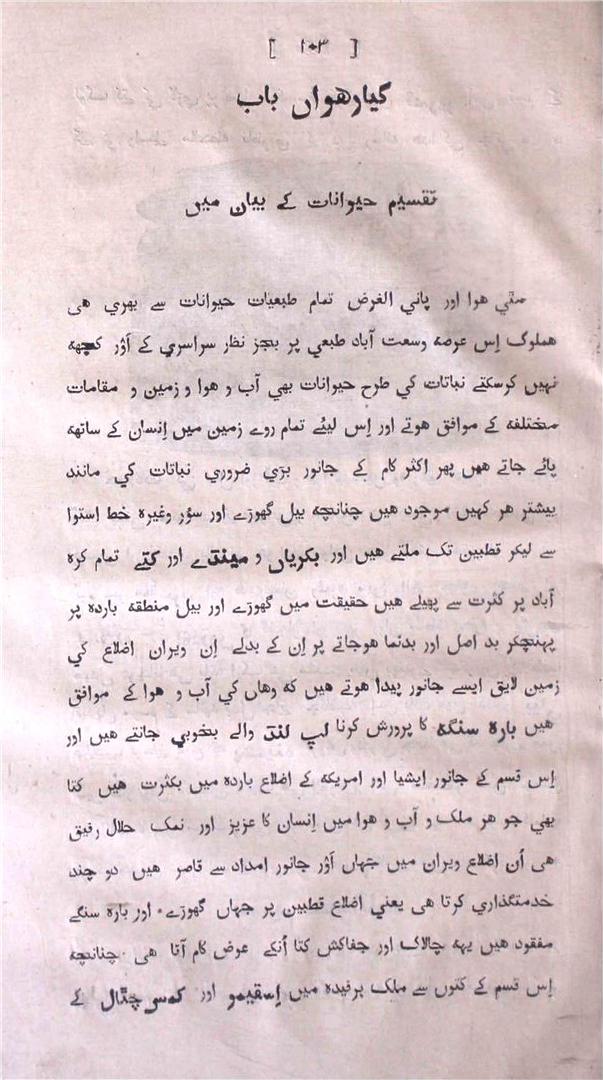 [ ١٠٣ ]
گیارھواں باب
تقسیم حیوانات کے بیان میں
مٹی ھوا اور پاني الغرض تمام طبعیات حیوانات سے بھري ھی
ھملوگ اِس عرصہ وسعت آباد طبعي پر بجز نظر سراسري کے اَوْر کچھہ
نہیں کرسکتے نباتات کي طرح حیوانات بھي آب و ھوا و زمین و مقامات
مختلفہ کے موافق ھوتے اور اِس لیئے تمام روے زمین میں اِنسان کے ساتھہ
پائے جاتے ھیں پھر اکثر کام کے جانور بڑي ضروري نباتات کي مانند
بیشتر ھر کہیں موجود ھیں چنانچہ بیل گھوڑے اور سوُر وغیرہ خط استوا
سے لیکر قطبین تک ملتے ھیں اور بکریاں و مینڈے اور کتے تمام کرہ
آباد پر کثرت سے پھیلے ھیں حقیقت میں گھوڑے اور بیل منطقہ باردہ پر
پہنچکر بد اصل اور بدنما ھوجاتے پر اِن کے بدلے اِن ویران اضلاع کي
زمین لایق ایسے جانور پیدا ھوتے ھیں کہ وھاں کي آب و ھوا کے موافق
ھیں بارہ سنگہ کا پرورش کرنا لپ لنڈ والے بخوبي جانتے ھیں اور
اِس قسم کے جانور ایشیا اور امریکہ کے اضلاع باردہ میں بکثرت ھیں کتا
بھي جو ھر ملک و آب و ھوا میں اِنسان کا عزیز اور نمک حلال رفیق
ھی اُن اضلاع ویران میں جہاں اَوْر جانور امداد سے قاصر ھیں دو چند
خدمتگذاري کرتا ھی یعني اضلاع قطبین پر جہاں گھوڑے اور بارہ سنگے
مفقود ھیں یہہ چالاک اور جفاکش کتا اُنکے عوض کام آتا ھی چنانچہ
اِس قسم کے کتوں سے ملک برفیدہ میں اِسقیمو اور کے